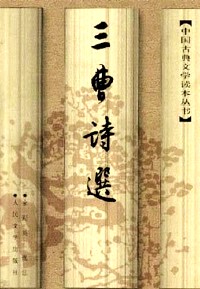 【中国古典文学读本丛书】
三曹詩選
人民文学出版社